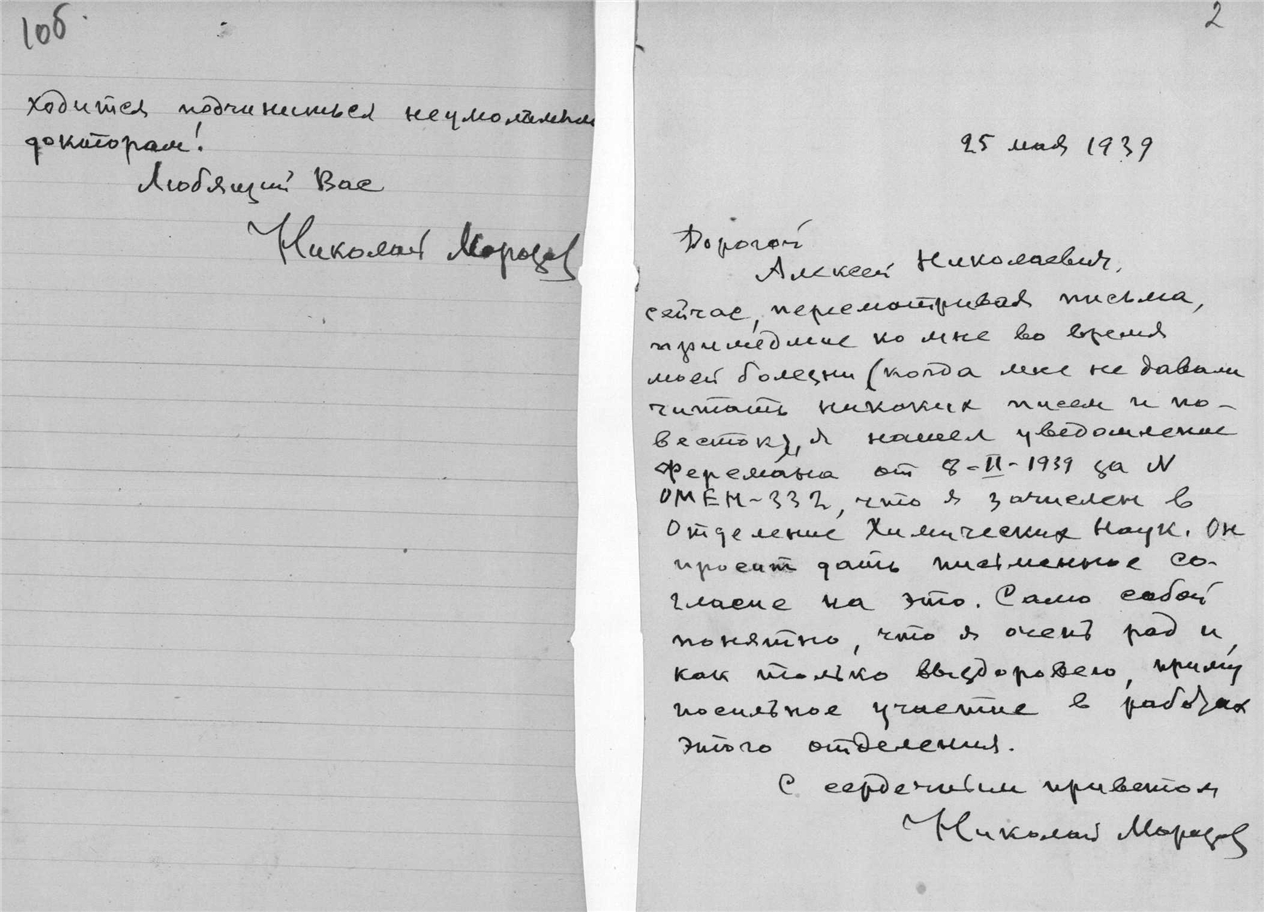 10б
ходится подчиниться неумолимым
докторам!
Любящий Вас
Николай Морозов
2
25 мая 1939
Дорогой
Алексей Николаевич,
сейчас, пересмотривая письма,
пришедшие ко мне во время
моей болезни (когда мне не давали
читать никаких писем и по-
весток), я нашел уведомление
Ферсмана от 8-II-1939 за N
ОМЕН-332, что я зачислен в
Отделение Химических Наук. Он
просит дать письменное со-
гласие на это. Само собой
понятно, что я очень рад и,
как только выздоровею, приму
посильное участие в работах
этого отделения.
С сердечным приветом
Николай Морозов